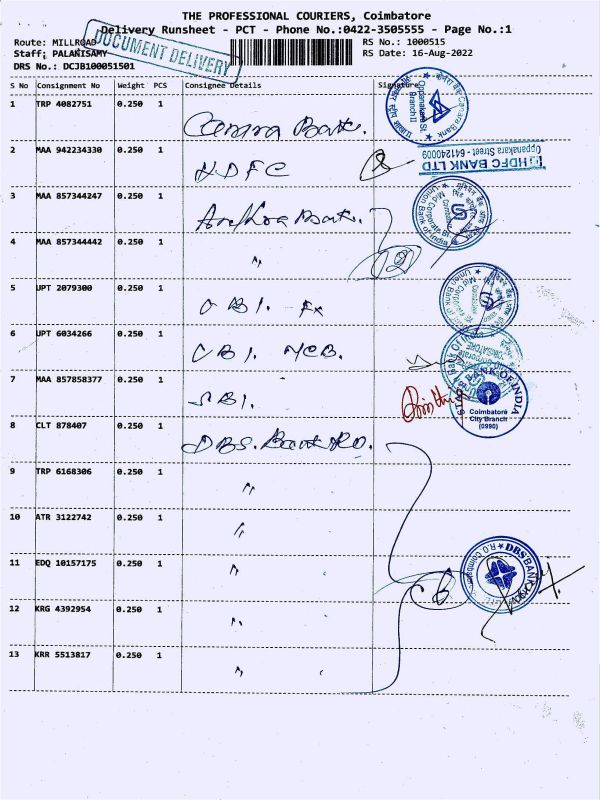 THE PROFESSIONAL COURIERS, Coimbatore
Delivery Runsheet - PCT - Phone No.:0422-3505555 - Page No.:1
Route: MILLROAD
RS No.: 1000515
Staff: PALANISAMY
RS Date: 16-Aug-2022
DRS No.: DCJB100051501
DOCUMENT DELIVERY
S No Consignment No Weight PCS Consignee Details Signature
1 TRP 4082751 0.250 1 Canara Bank.
2 MAA 942234330 0.250 1 HDFC
HDFC BANK LTD
Oppanakara Street - 641240009
3 MAA 857344247 0.250 1 Andhra Bank.
4 MAA 857344442 0.250 1 〃
5 UPT 2079300 0.250 1 UBI. Fx
6 UPT 6034266 0.250 1 UBI. MCB.
7 MAA 857858377 0.250 1 SBI.
8 CLT 878407 0.250 1 DBS. Bank RO.
9 TRP 6168306 0.250 1 〃
10 ATR 3122742 0.250 1 〃
11 EDQ 10157175 0.250 1 〃
12 KRG 4392954 0.250 1 〃
13 KRR 5513817 0.250 1 〃
Canara Bank
Oppanakara St.
Branch II
Union Bank of India
Union Bank of India
BANK OF INDIA
Coimbatore
City Branch
(0990)
DBS BANK
R.O. Coimbatore